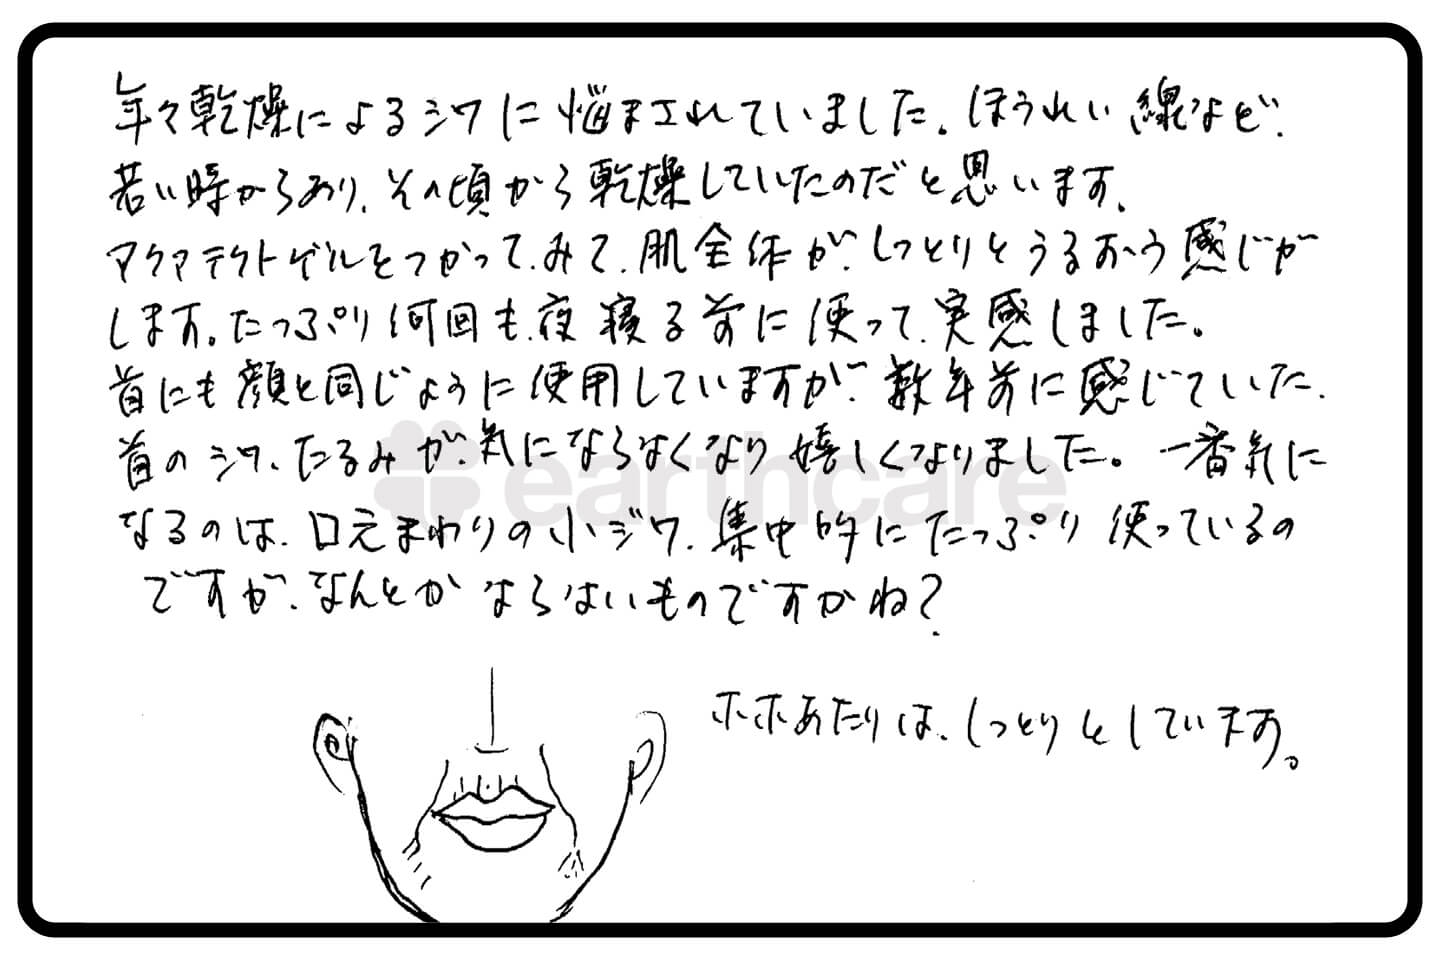 年々乾燥によるシワに悩まされていました。ほうれい線など、
若い時からあり、その頃から乾燥していたのだと思います。
アクアテクトゲルをつかってみて、肌全体が、しっとりとうるおう感じが
します。たっぷり何回も、夜寝る前に使って、実感しました。
首にも顔と同じように使用していますが、数年前に感じていた、
首のシワ、たるみが、気にならなくなり嬉しくなりました。一番気に
なるのは、口元まわりの小ジワ、集中的にたっぷり使っているの
ですが、なんとかならないものですかね?
ホホあたりは、しっとりとしています。
earthcare